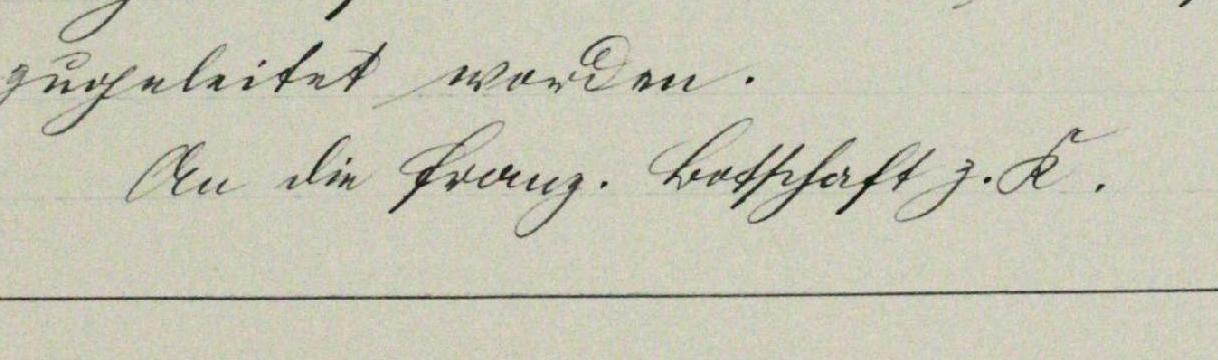 zugeleitet worden.
An die franz. Botschaft z. K.